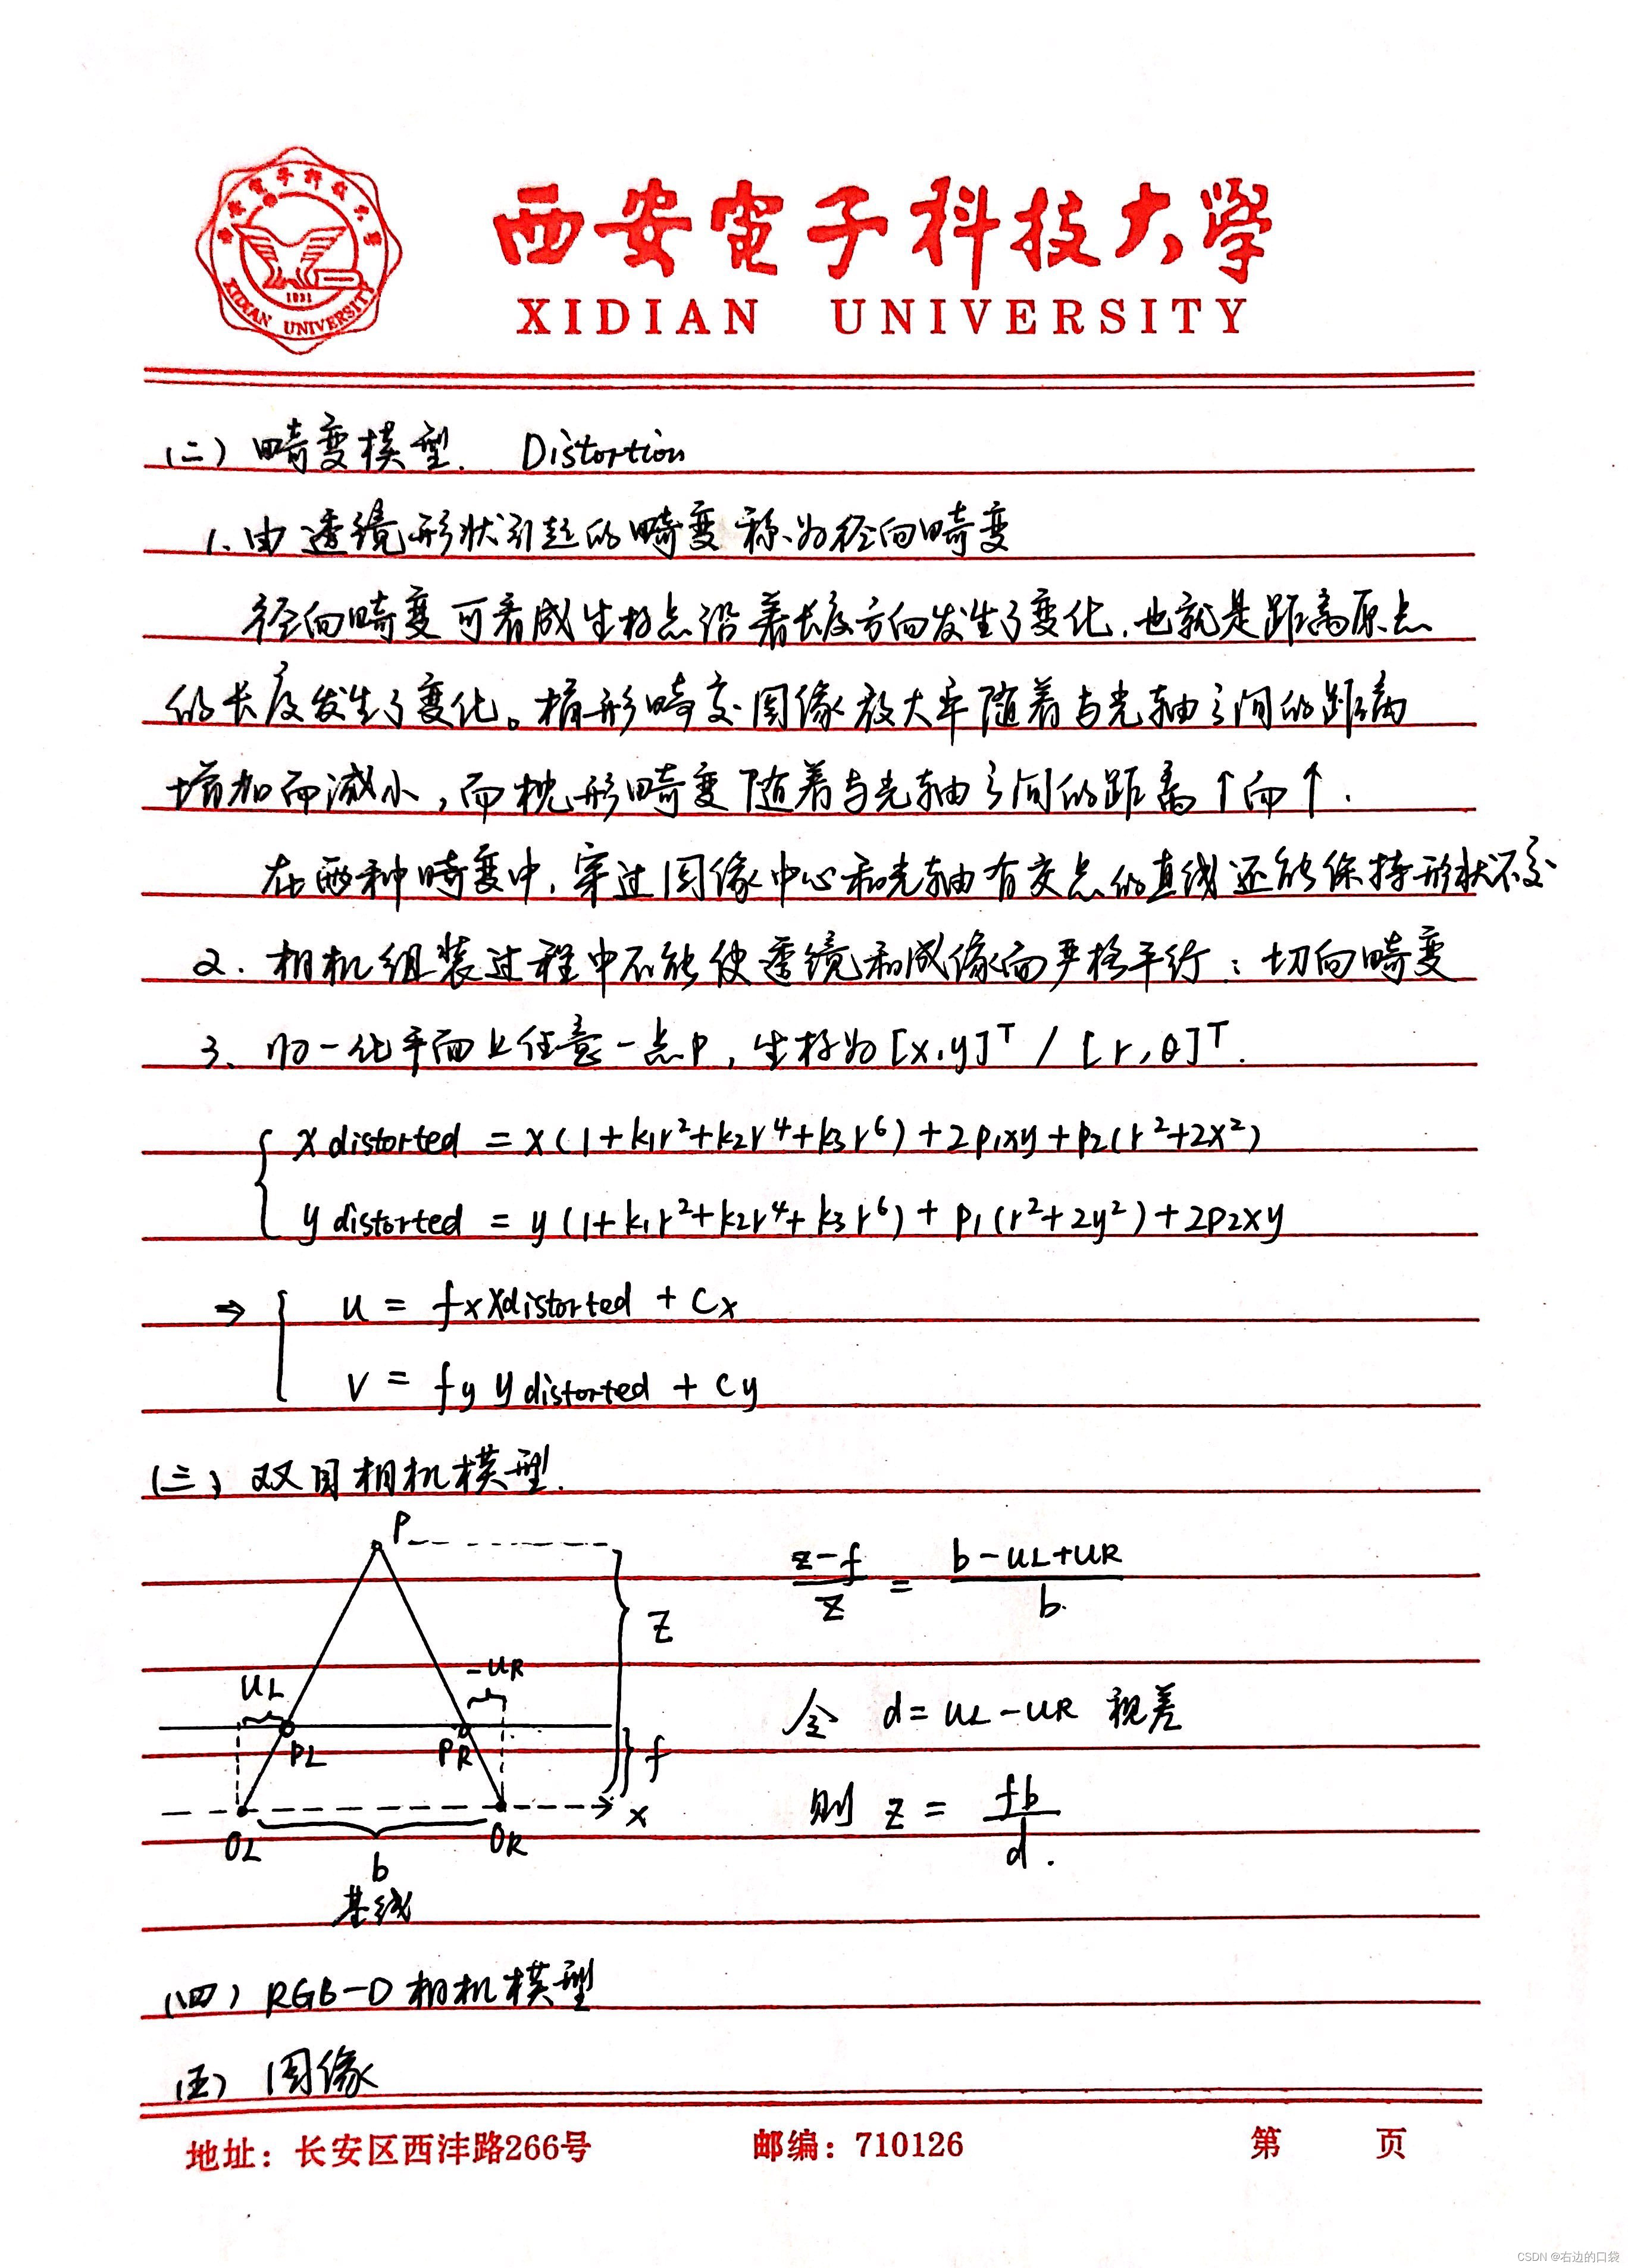 西安電子科技大學
XIDIAN UNIVERSITY
1931
XIDIAN UNIVERSITY
(二) 畸变模型. Distortion
1、由透镜形状引起的畸变称为径向畸变
径向畸变可看成坐标点沿着长度方向发生了变化,也就是距离原点
的长度发生了变化。桶形畸变图像放大率随着与光轴之间的距离
增加而减小,而枕形畸变随着与光轴之间的距离↑而↑.
在两种畸变中,穿过图像中心和光轴有交点的直线还能保持形状不变
2. 相机组装过程中不能使透镜和成像面严格平行:切向畸变
3、归一化平面上任意一点P,坐标为[x,y]ᵀ / [r,θ]ᵀ.
x distorted = x(1+k₁r²+k₂r⁴+k₃r⁶)+2p₁xy+p₂(r²+2x²)
y distorted = y(1+k₁r²+k₂r⁴+k₃r⁶)+p₁(r²+2y²)+2p₂xy
⇒ u = fx xdistorted + Cx
v = fy ydistorted + Cy
(三) 双目相机模型.
P
z-f / z = b-uL+uR / b.
Z
uL
-uR
令 d=uL-uR 视差
PL PR f
则 z = fb / d.
x
OL OR
b
基线
(四) RGB-D相机模型
(五) 图像
地址:长安区西沣路266号 邮编:710126 第 页
CSDN @右边的口袋